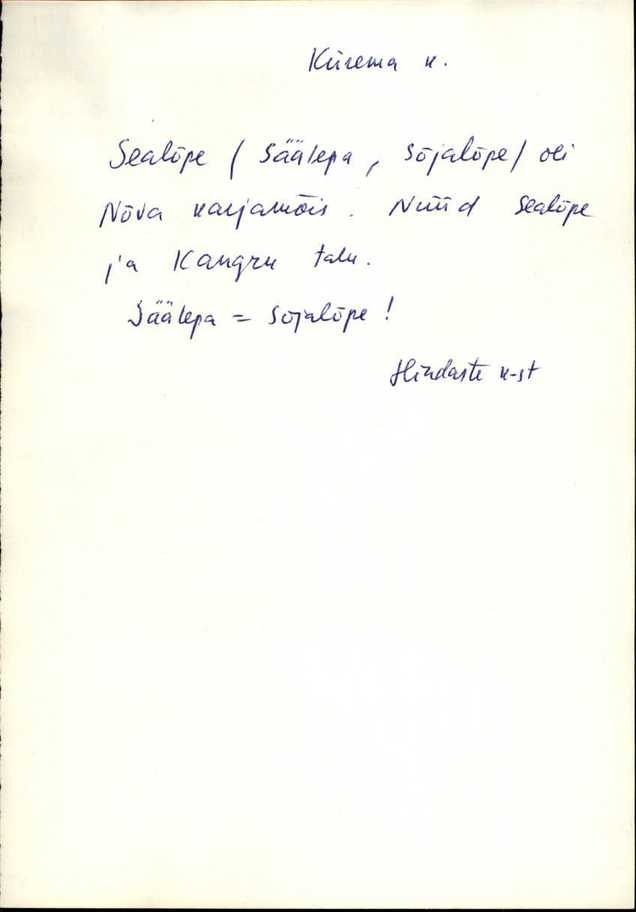 Kürema k.
Sealõpe (Säälepa, Sõjalõpe) oli
Nõva karjamõis. Nüüd Sealõpe
ja Kangru talu.
Säälepa = Sõjalõpe!
Hindaste k-st